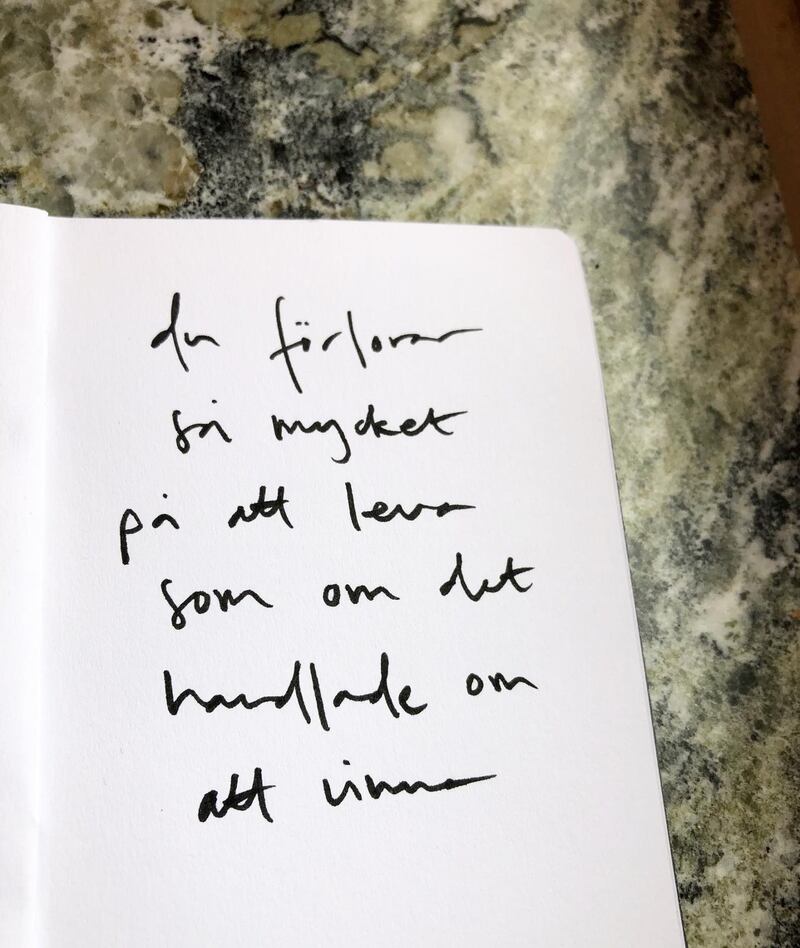 du förlorar
så mycket
på att leva
som om det
handlade om
att vinna